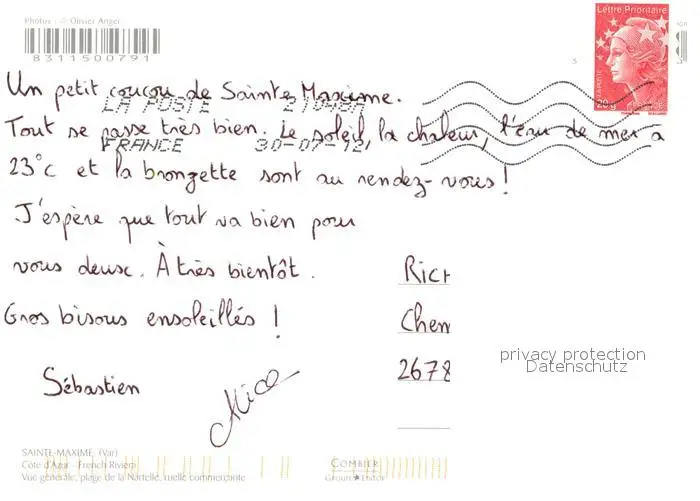 Photos : © Olivier Anger
8311500791
Lettre Prioritaire
20g
Un petit coucou de Sainte Maxime.
LA POSTE 21048A
Tout se passe très bien. Le soleil la chaleur, l'eau de mer à
FRANCE 30-07-12
23°c et la bronzette sont au rendez-vous !
J'espère que tout va bien pour
vous deux. À très bientôt.
Gros bisous ensoleillés !
Sébastien
Rich
Chem
2678
privacy protection
Datenschutz
SAINTE-MAXIME (Var)
Côte d'Azur - French Riviera
Vue générale, plage de la Nartelle, ruelle commerçante
COMBIER
Groupe Editor